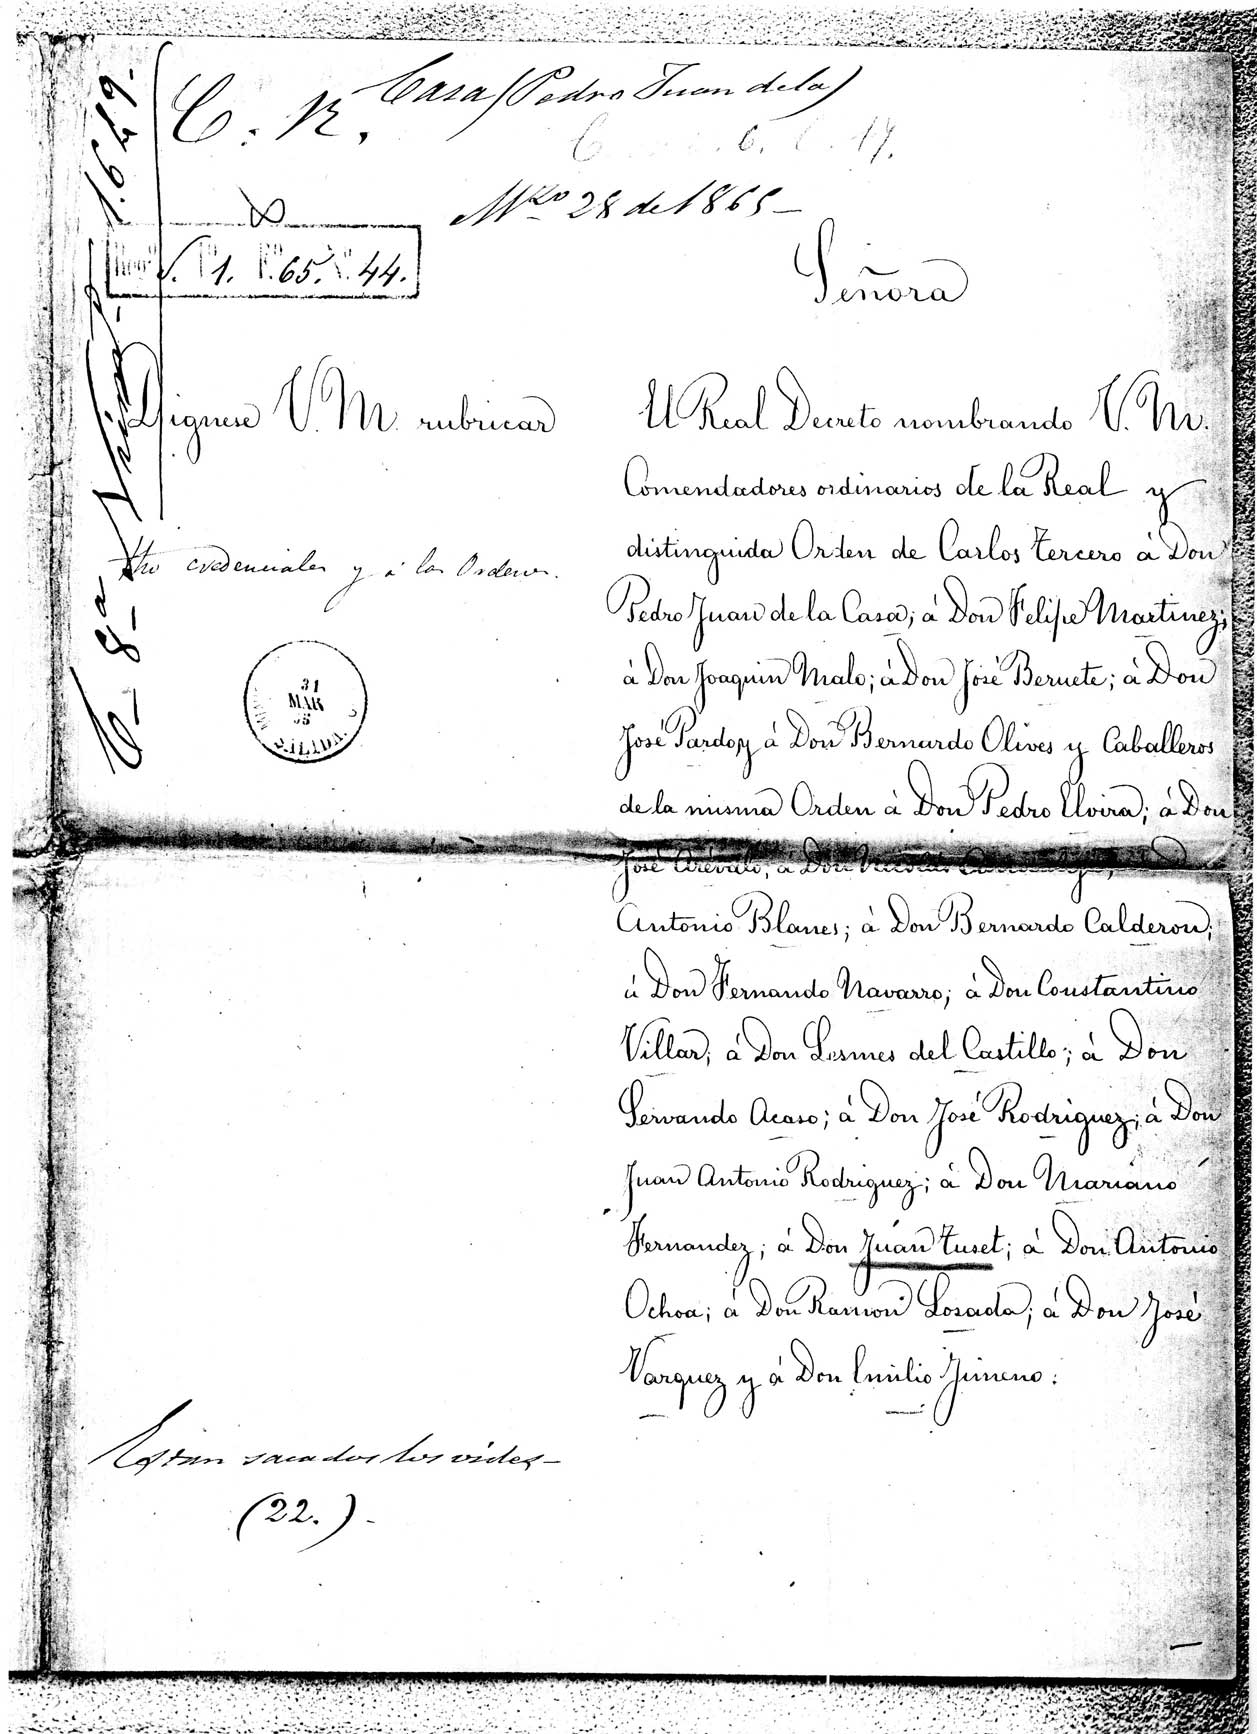 Casa (Pedro Juan de la)
C. R.
Mzo 28 de 1865
1. 65. 44.
Señora
Dignese V. M. rubricar
El Real Decreto nombrando V. M.
Comendadores ordinarios de la Real y
distinguida Orden de Carlos tercero à Don
Pedro Juan de la Casa; à Don Felipe Martinez;
à Don Joaquin Malo; à Don José Beruete; à Don
José Pardo, y à Don Bernardo Olives y Caballeros
de la misma Orden à Don Pedro Elvira; à Don
José Arévalo; à Don
Antonio Blanes; à Don Bernardo Calderon;
à Don Fernando Navarro; à Don Constantino
Villar; à Don Lesmes del Castillo; à Don
Servando Acaso; à Don José Rodriguez; à Don
Juan Antonio Rodriguez; à Don Mariano
Fernandez; à Don Juan Tuset; à Don Antonio
Ochoa; à Don Ramon Losada; à Don José
Varquez y à Don Emilio Jimeno.
credenciales y à las Ordenes.
31
MAR
SALIDA
Estan sacados los vides
(22.)
1.649.
8ª